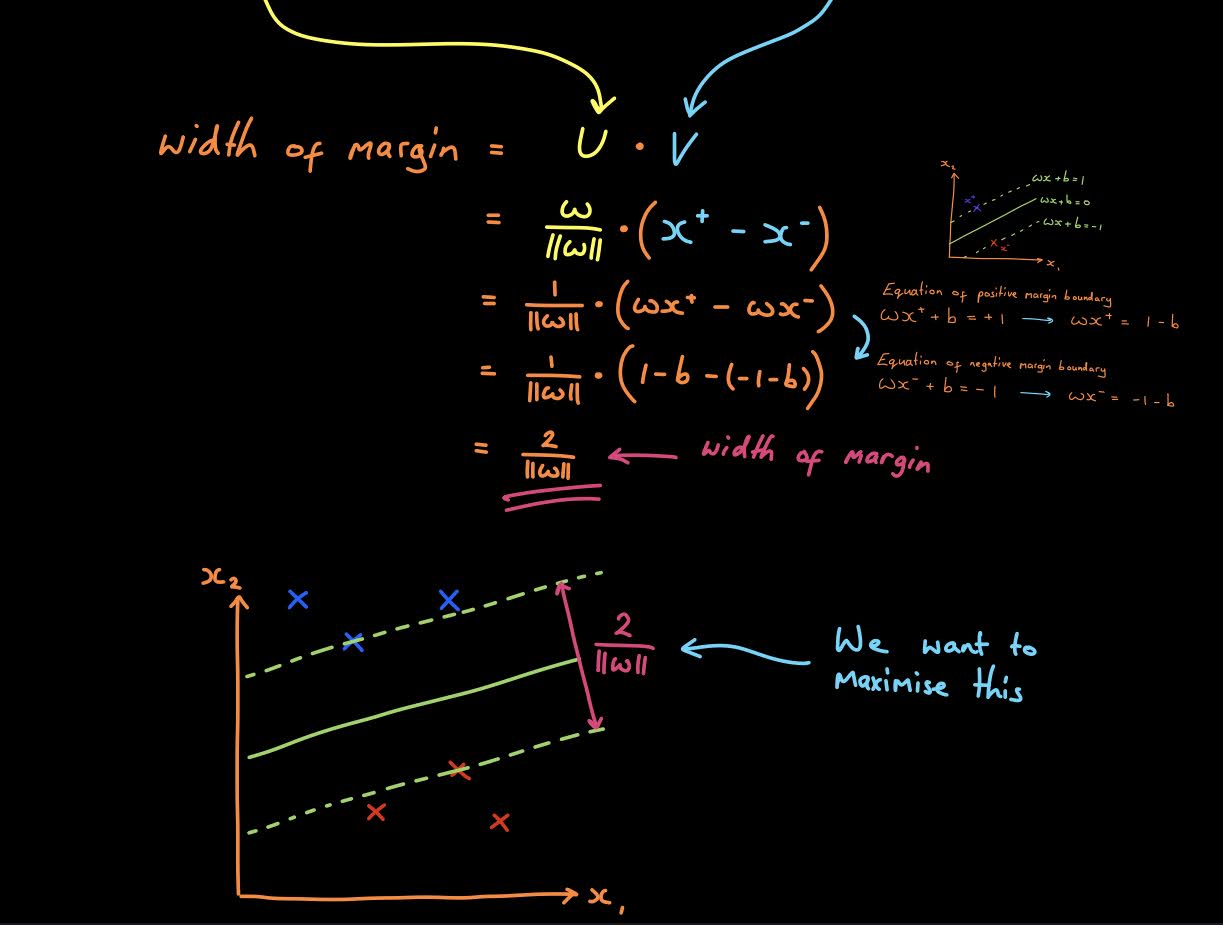 width of margin = U · V
= ω/||ω|| · (x⁺ - x⁻)
= 1/||ω|| · (ωx⁺ - ωx⁻)
= 1/||ω|| · (1-b-(-1-b))
= 2/||ω|| ← width of margin
x₂
ωx+b=1
x⁺
ωx+b=0
ωx+b=-1
x⁻
x₁
Equation of positive margin boundary
ωx⁺+b=+1 → ωx⁺= 1-b
Equation of negative margin boundary
ωx⁻+b=-1 → ωx⁻= -1-b
x₂
2/||ω||
We want to
maximise this
x₁